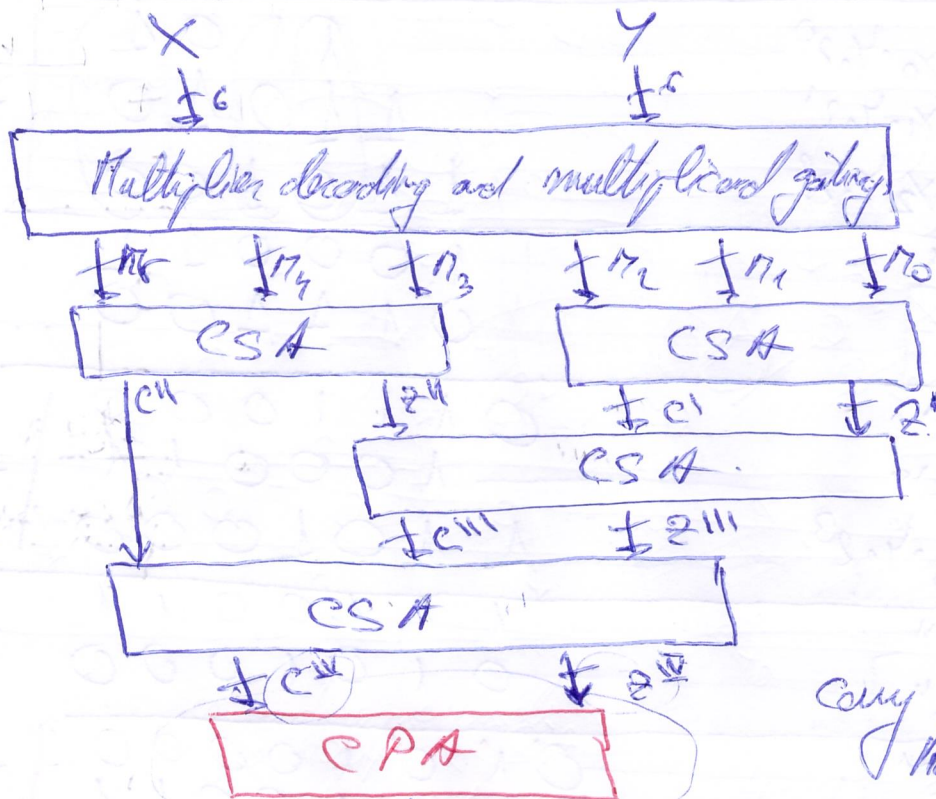 X Y
6 6
Multiplier decoding and multiplicand gating
M5 M4 M3 M2 M1 M0
CSA CSA
C" Z" C' Z'
CSA
C''' Z'''
CSA
Carry
CPA